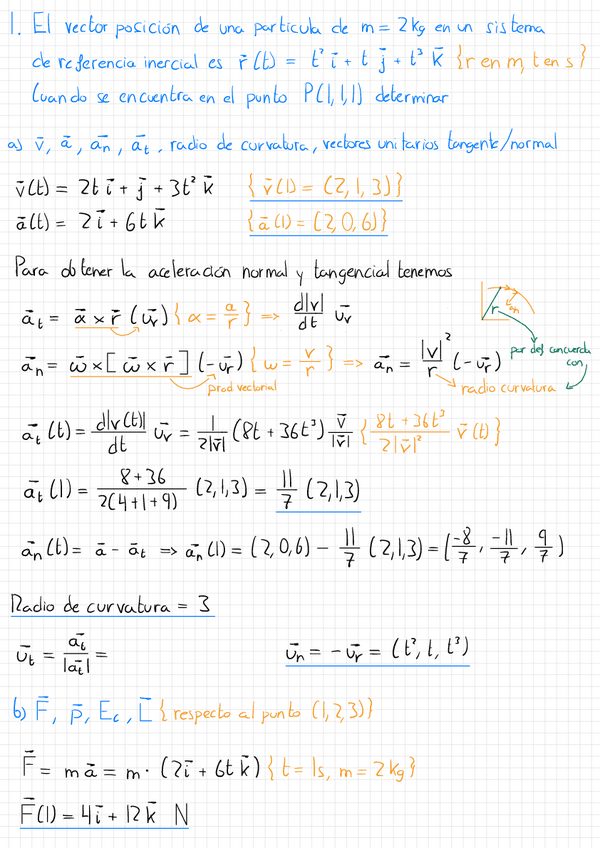 1. El vector posición de una particula de m = 2kg en un sistema
de referencia inercial es r̄(t) = t² ī + t j̄ + t³ k̄ {r en m, t en s}
Cuando se encuentra en el punto P(1,1,1) determinar
a) v̄, ā, āₙ, āₜ, radio de curvatura, vectores unitarios tangente/normal
v̄(t) = 2t ī + j̄ + 3t² k̄ {v̄(1) = (2,1,3)}
ā(t) = 2ī + 6t k̄ {ā(1) = (2,0,6)}
Para obtener la aceleración normal y tangencial tenemos
āₜ = ᾱ × r̄ (ūᵣ) {α = a/r} => d|v|/dt ūᵥ
āₙ = ω̄ × [ω̄ × r̄] (-ūᵣ) {ω = v/r} => āₙ = |v|²/r (-ūᵣ)
r
aₙ
por def concuerda
con
prod vectorial
radio curvatura
āₜ(t) = d|v(t)|/dt ūᵥ = 1/2|v̄| (8t + 36t³) v̄/|v̄| {8t + 36t³/2|v̄|² v̄(t)}
āₜ(1) = 8+36/2(4+1+9) (2,1,3) = 11/7 (2,1,3)
āₙ(t) = ā - āₜ => āₙ(1) = (2,0,6) - 11/7 (2,1,3) = (-8/7, -11/7, 9/7)
Radio de curvatura = 3
ūₜ = āₜ/|āₜ| = ūₙ = -ūᵣ = (t², t, t³)
b) F̄, p̄, Ec, L̄ {respecto al punto (1,2,3)}
F̄ = m ā = m · (2ī + 6t k̄) {t = 1s, m = 2kg}
F̄(1) = 4ī + 12k̄ N